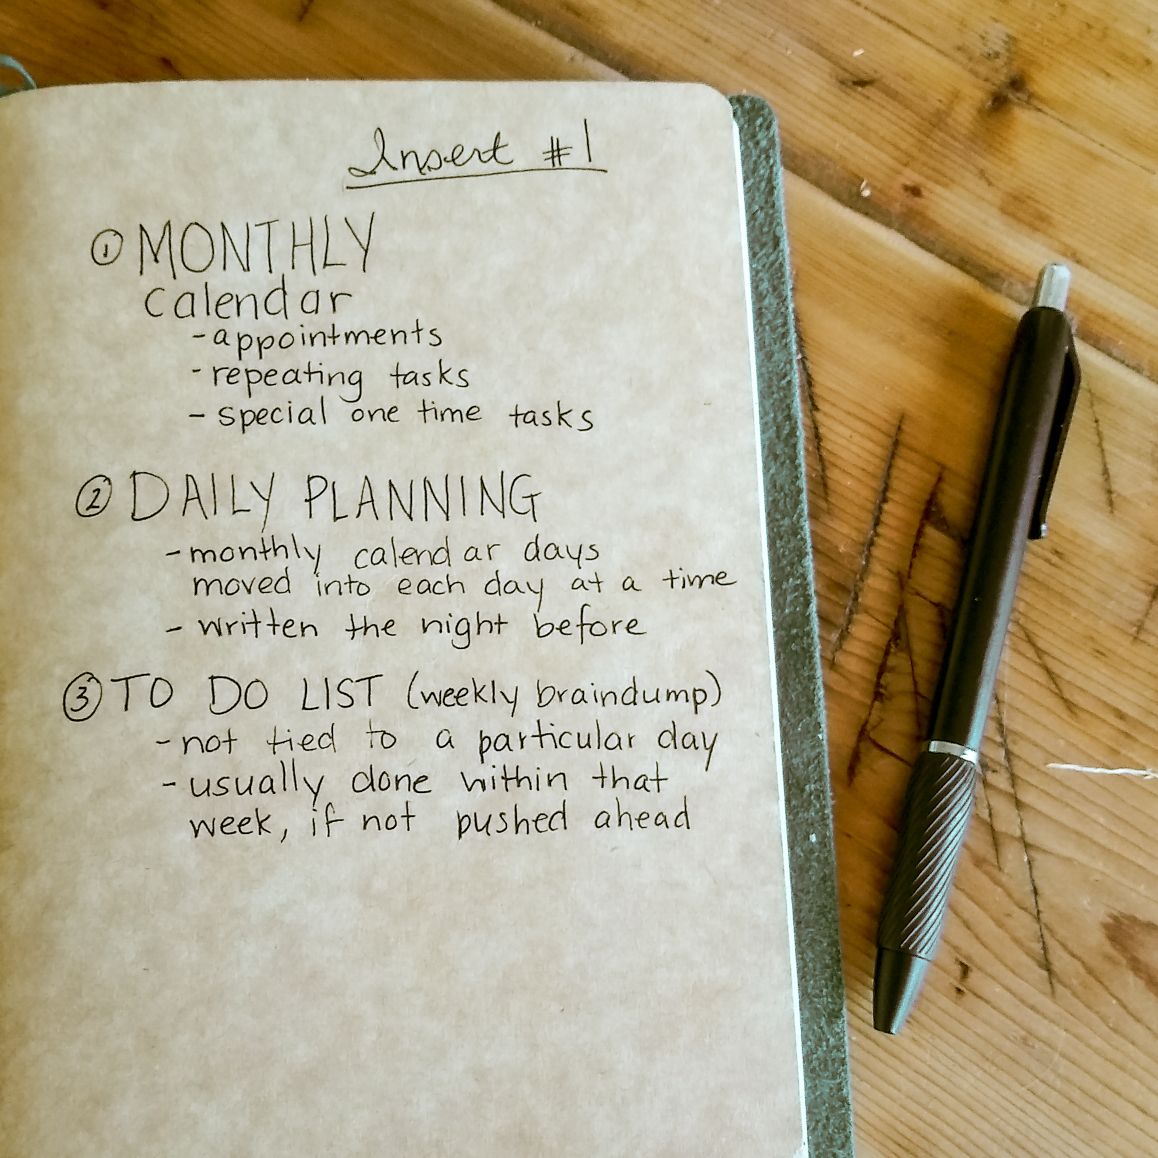 Insert #1
① MONTHLY
calendar
- appointments
- repeating tasks
- special one time tasks
② DAILY PLANNING
- monthly calendar days
moved into each day at a time
- written the night before
③ TO DO LIST (weekly braindump)
- not tied to a particular day
- usually done within that
week, if not pushed ahead